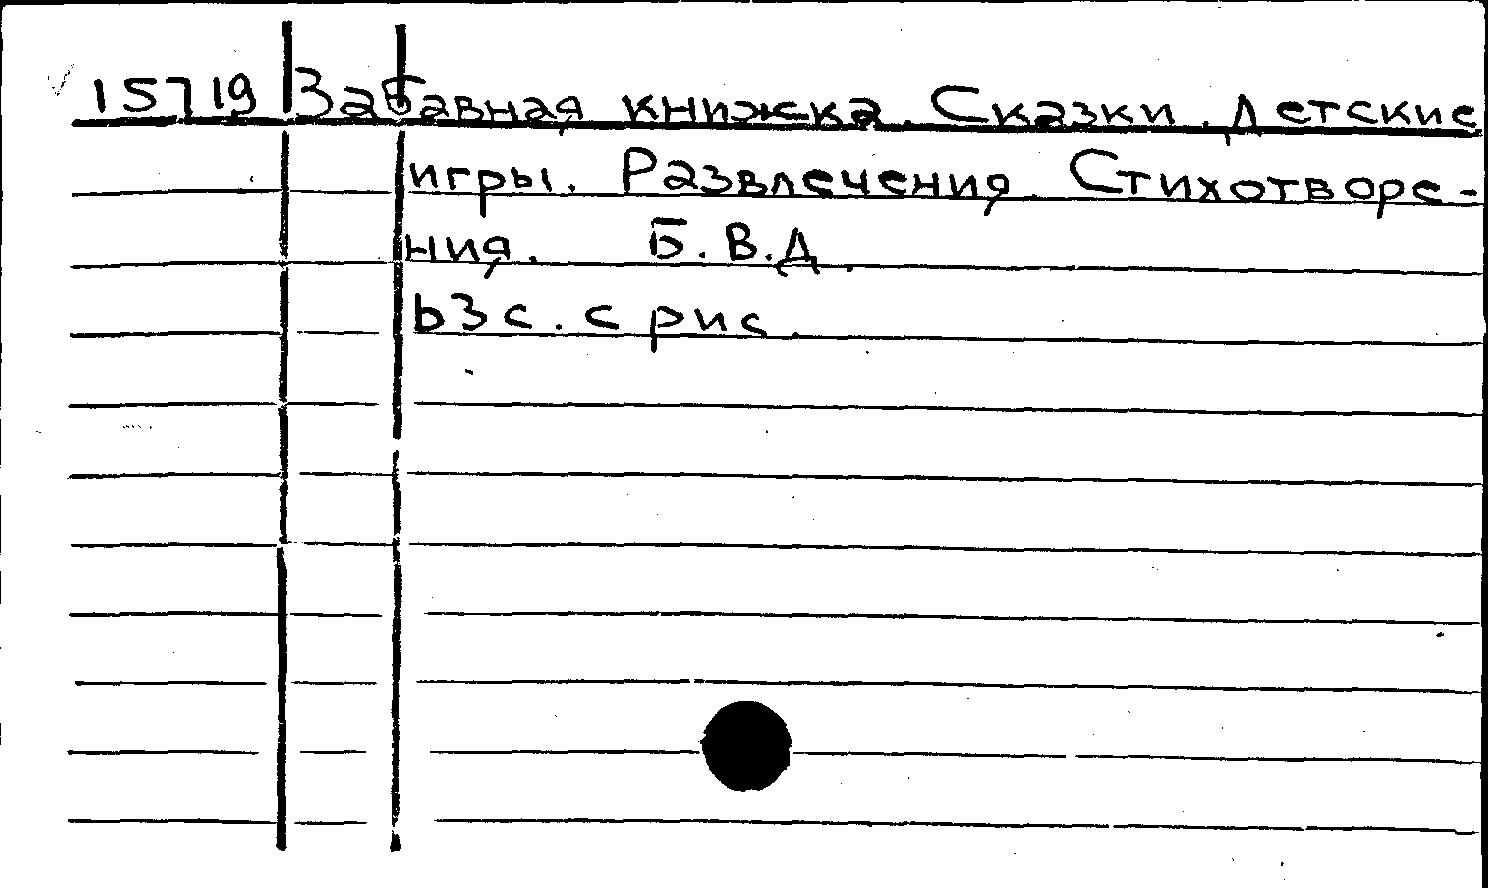 15719 Забавная книжка. Сказки. Детские
игры. Развлечения. Стихотворе-
ния. Б.В.Д.
63 с. с рис.